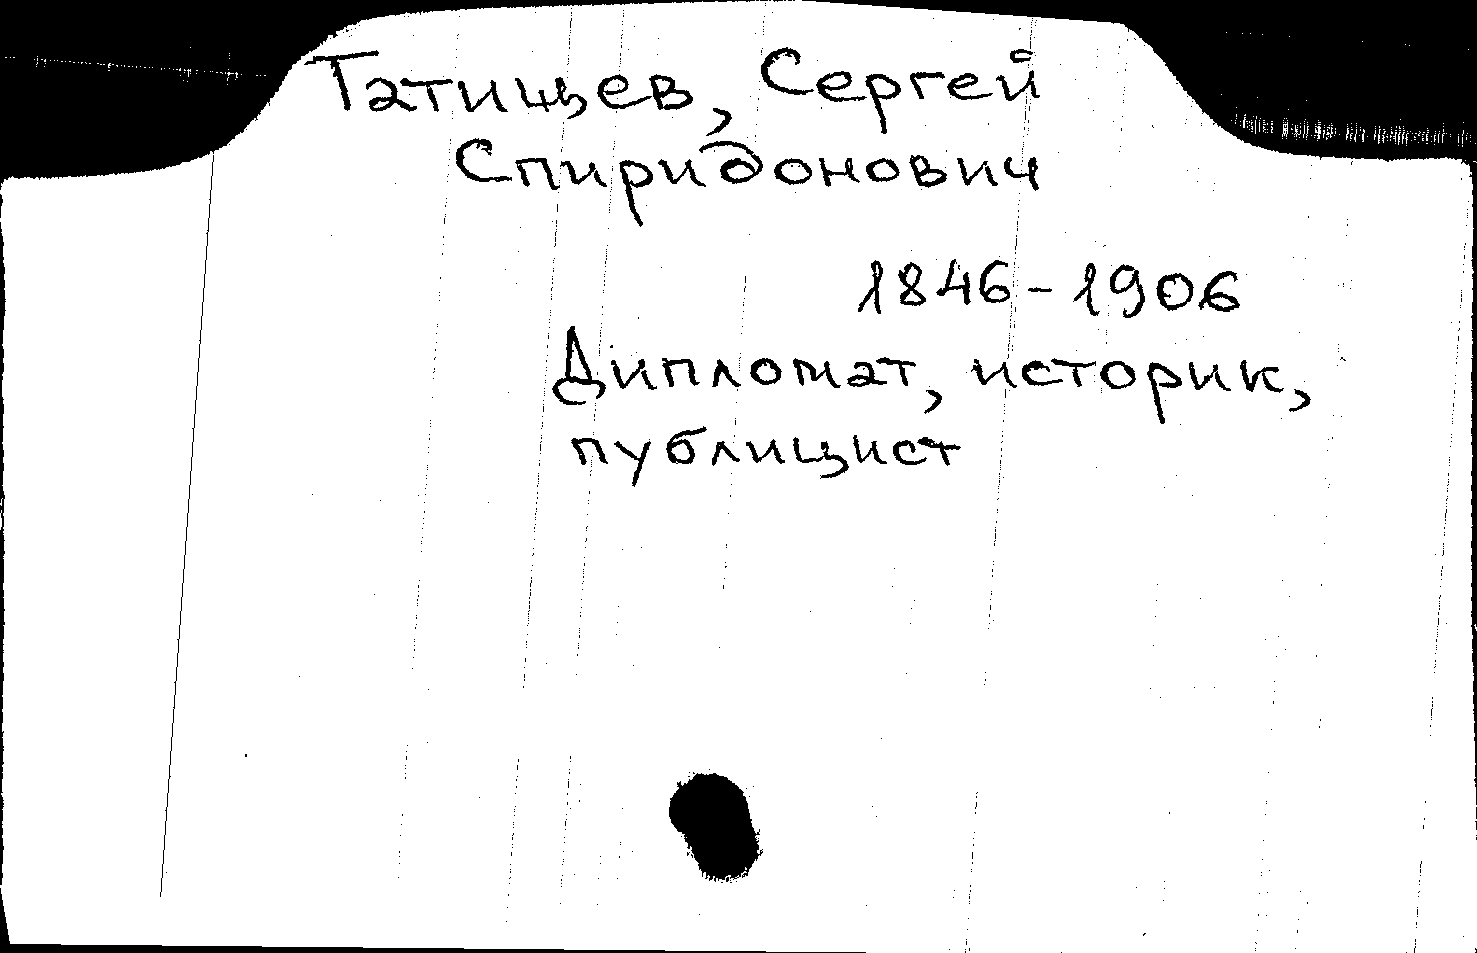 Татищев, Сергей
Спиридонович
1846-1906
Дипломат, историк,
публицист